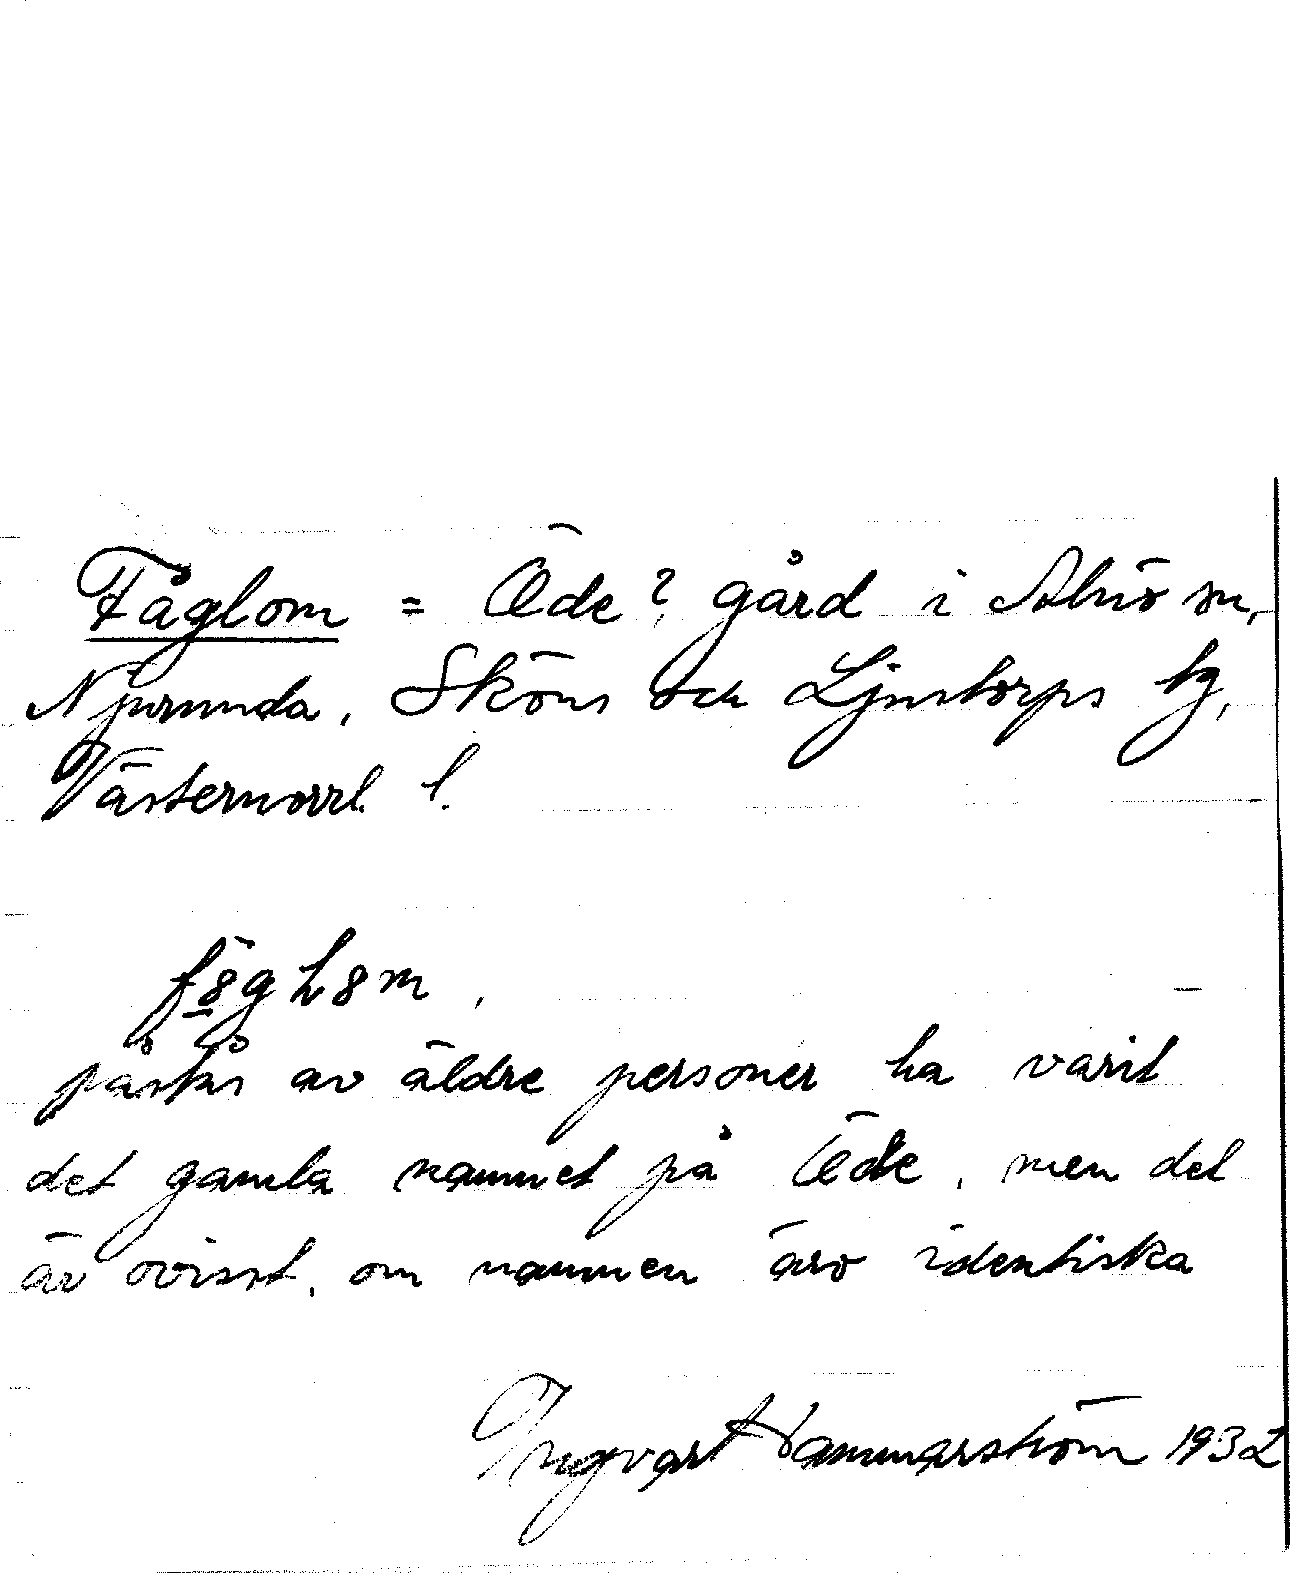 Fåglom = Öde? gård i Alnö sn,
Njurunda, Sköns och Ljustorps tg,
Västernorrl. l.
påstås av äldre personer ha varit
det gamla namnet på Öde, men det
är ovisst, om namnen äro identiska
Ingvart Hammarström 1932